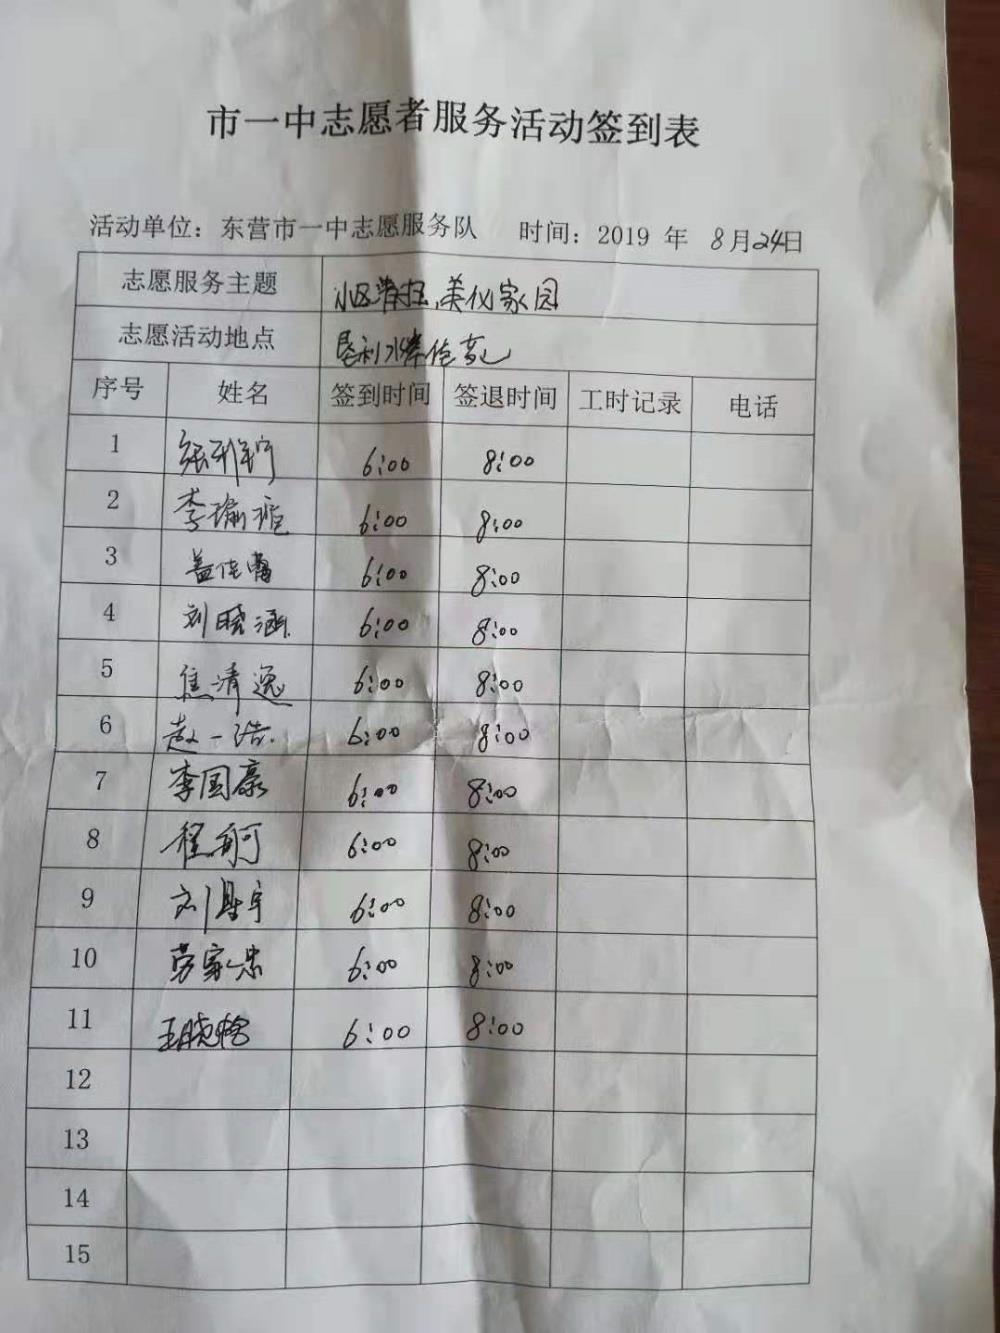 市一中志愿者服务活动签到表
活动单位：东营市一中志愿服务队 时间：2019 年 8月24日
志愿服务主题 小区清扫,美化家园
志愿活动地点 垦利
序号 姓名 签到时间 签退时间 工时记录 电话
1 6:00 8:00
2 李瑜 6:00 8:00
3 盖佳 6:00 8:00
4 刘晓涵 6:00 8:00
5 焦清逸 6:00 8:00
6 赵一浩 6:00 8:00
7 李国豪 6:00 8:00
8 程 6:00 8:00
9 刘 宇 6:00 8:00
10 劳家忠 6:00 8:00
11 王晓 6:00 8:00
12
13
14
15